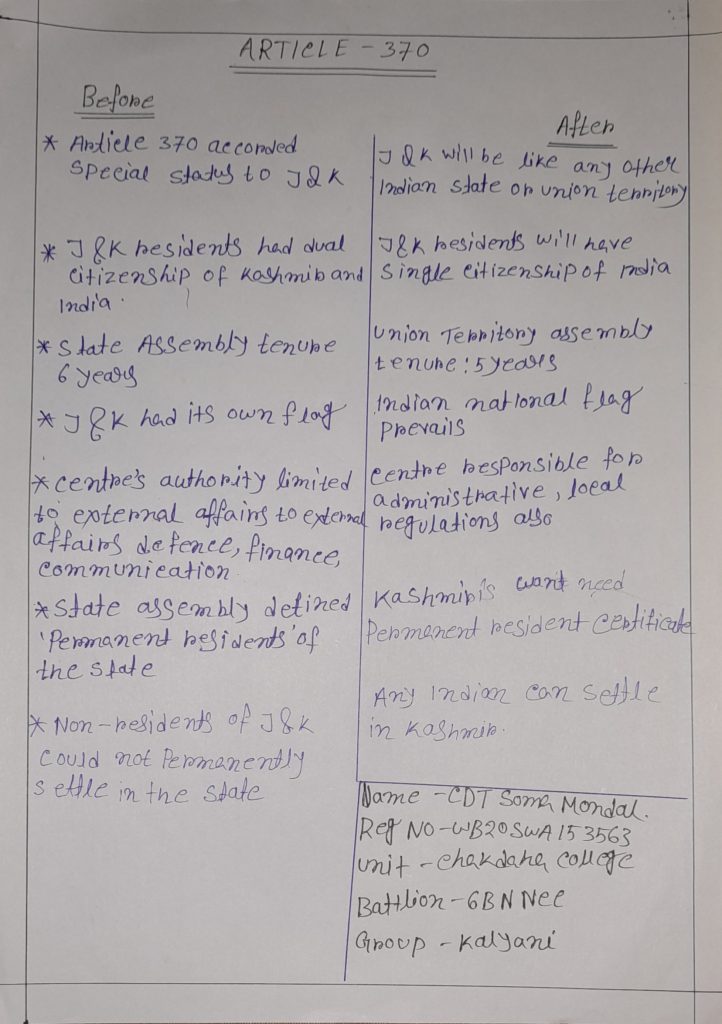 ARTICLE - 370
Before
* Article 370 accorded
special status to J&K
* J&K residents had dual
citizenship of Kashmir and
India.
* State Assembly tenure
6 years
* J&K had its own flag
* centre's authority limited
to external affairs to external
affairs defence, finance,
communication
* State assembly defined
'Permanent residents' of
the state
* Non-residents of J&K
could not Permanently
settle in the state
After
J&K will be like any other
Indian state or union territory
J&K residents will have
single citizenship of India
Union Territory assembly
tenure : 5 years
Indian national flag
prevails
centre responsible for
administrative, local
regulations also
Kashmiri's won't need
Permanent resident certificate
Any Indian can settle
in Kashmir.
Name - CDT Soma Mondal.
Reg NO - WB20SWA153563
Unit - Chakdaha College
Battlion - 6BN NCC
Group - Kalyani